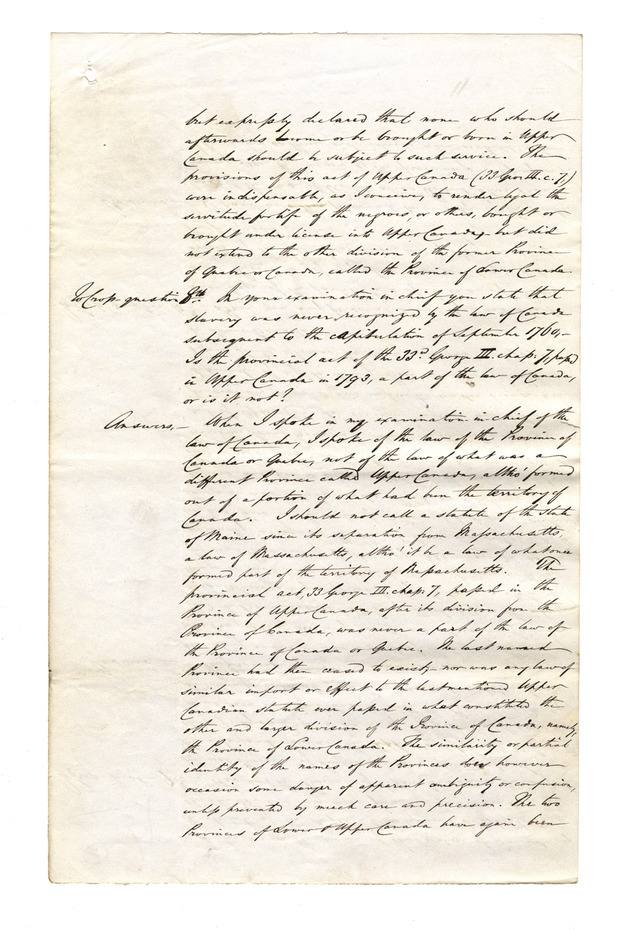 but expressly declared that none who should
afterwards become or be brought or born in Upper
Canada should be subject to such service. The
provisions of this act of Upper Canada (33 Geo. III. c. 7)
were indispensable, as I conceive, to render legal the
servitude for life of the negroes, or others, bought or
brought under license into Upper Canada, but did
not extend to the other division of the former Province
of Quebec or Canada, called the Province of Lower Canada.
To Cross question 8th. In your examination in chief you state that
slavery was never recognized by the law of Canada
subsequent to the capitulation of September 1760,–
Is the provincial act of the 33d. George III. chap: 7, passed
in Upper Canada in 1793, a part of the law of Canada,
or is it not?
Answers,– When I spoke in my examination in chief of the
law of Canada, I spoke of the law of the Province of
Canada or Quebec, not of the law of what was a
different Province called Upper Canada, altho' formed
out of a portion of what had been the territory of
Canada. I should not call a statute of the state
of Maine since its separation from Massachusetts,
a law of Massachusetts, altho' it be a law of what once
formed part of the territory of Massachusetts. The
provincial act, 33 George III. chap: 7, passed in the
Province of Upper Canada, after its division from the
Province of Canada, was never a part of the law of
the Province of Canada or Quebec. The last named
Province had then ceased to exist,– nor was any law of
similar import or effect to the lastmentioned Upper
Canadian statute ever passed in what constituted the
other and larger division of the Province of Canada, namely,
the Province of Lower Canada. The similarity or partial
identity of the names of the Provinces does however
occasion some danger of apparent ambiguity or confusion,
unless prevented by much care and precision. The two
Provinces of Lower & Upper Canada have again been